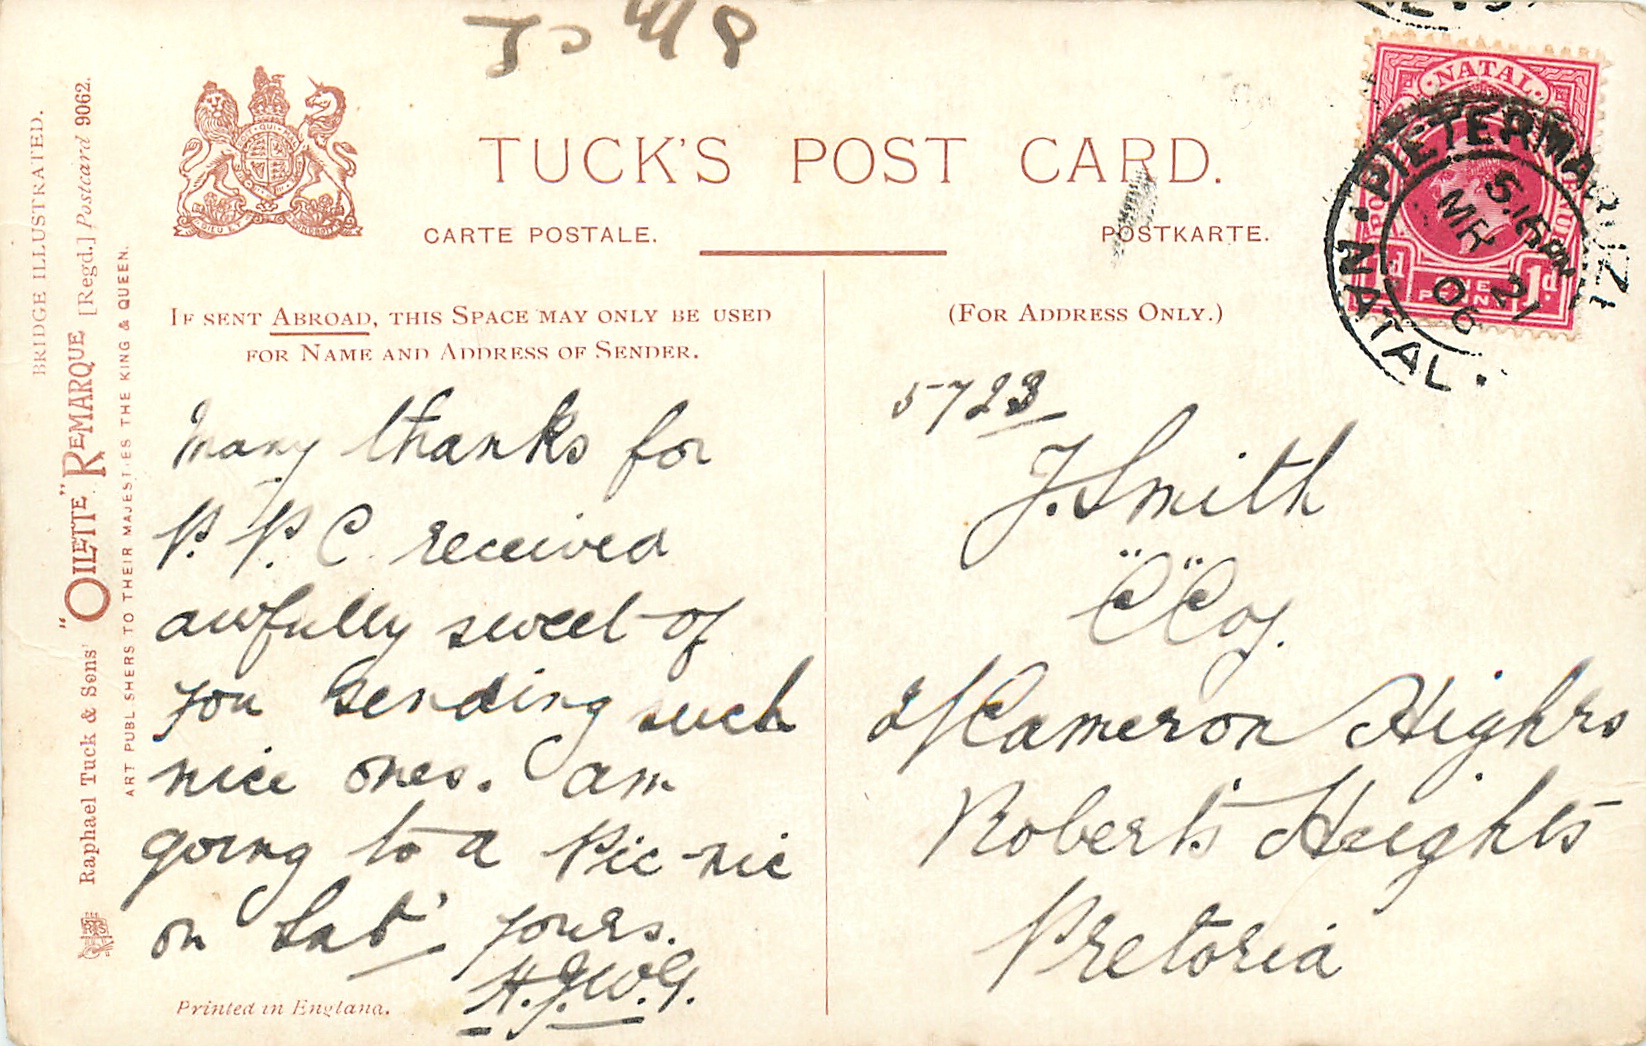 TUCK'S POST CARD.
CARTE POSTALE.
POSTKARTE.
IF SENT ABROAD, THIS SPACE MAY ONLY BE USED
FOR NAME AND ADDRESS OF SENDER.
(FOR ADDRESS ONLY.)
BRIDGE ILLUSTRATED.
Raphael Tuck & Sons' "OILETTE" REMARQUE [Regd.] Postcard 9062.
ART PUBLISHERS TO THEIR MAJESTIES THE KING & QUEEN.
NATAL
1d
PIETERMARITZ
5.15 PM
MR 21
06
NATAL
Many thanks for
P. P. C. received
awfully sweet of
you sending such
nice ones. am
going to a Pic-nic
on Sat'. yours.
H.J.W.G.
Printed in England.
5723
J. Smith
"C" Coy.
Cameron Highrs
Roberts Heights
Pretoria